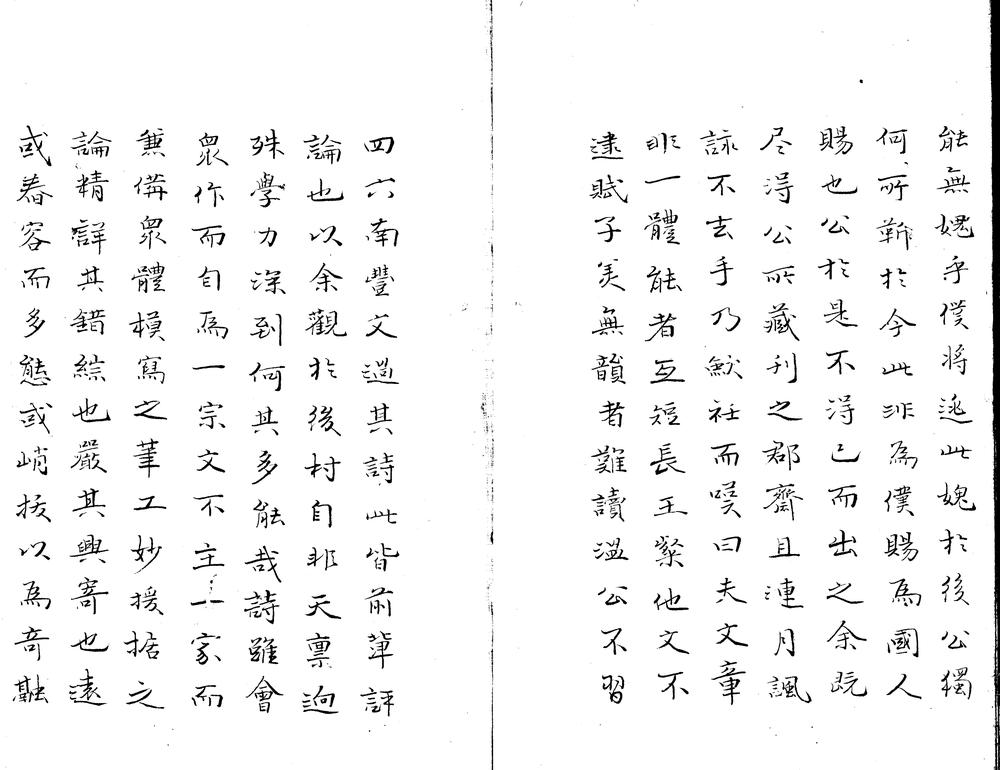 能無媿乎僕將逃此媿於後公獨
何所靳於今此非為僕賜為國人
賜也公於是不得已而出之余既
尽得公所藏刊之郡齋且連月諷
詠不去手乃斂衽而嘆曰夫文章
非一體能者互短長王粲他文不
逮賦子美無韻者難讀温公不習
四六南豐文過其詩此皆前軰評
論也以余觀於後村自非天禀迥
殊學力深到何其多能哉詩雖會
衆作而自為一宗文不主一家而
兼俻衆體模寫之筆工妙援据之
論精詳其錯綜也嚴其興寄也遠
或舂容而多態或峭拔以為竒融